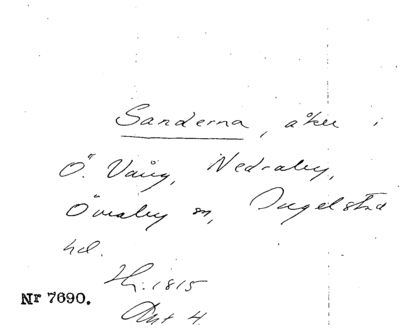 Sanderna, åker i
Ö. Vång, Nedraby,
Övraby sn, Ingelstad
hd.
Hr. 1815
Akt 4
Nr 7690.